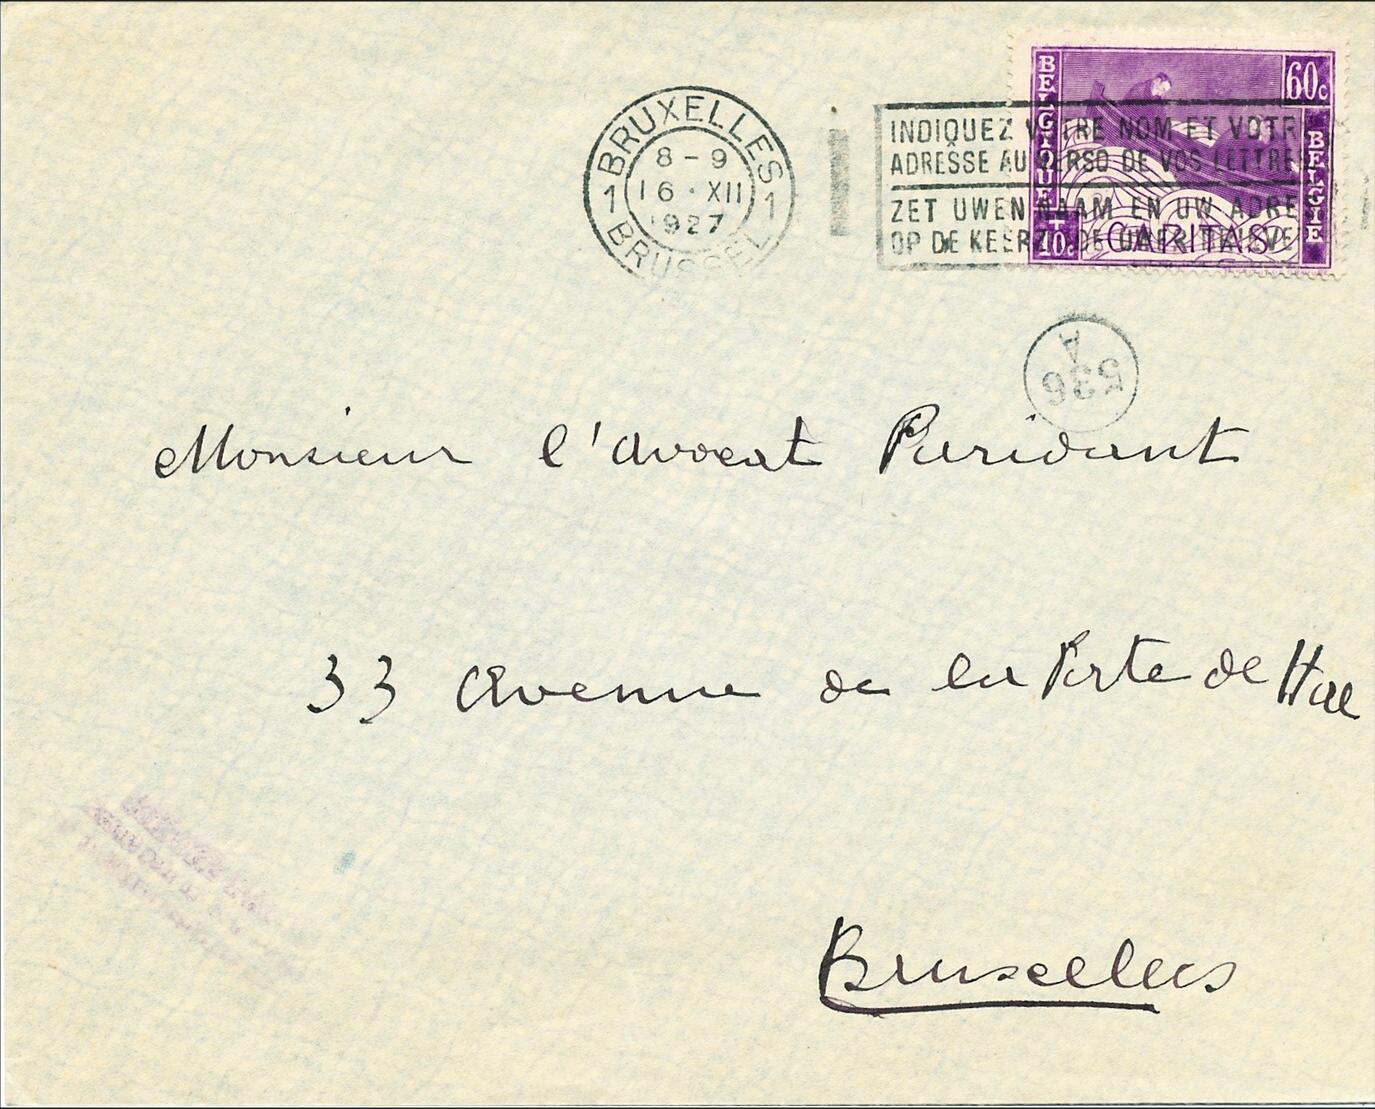 BRUXELLES
8 - 9
1 16 · XII 1
1927
BRUSSEL
INDIQUEZ VOTRE NOM ET VOTR
ADRESSE AU VERSO DE VOS LETTRES
ZET UWEN NAAM EN UW ADRE
OP DE KEERZIJDE UWER BRIEVE
BELGIQUE
60c
BELGIE
+10c
CARITAS
536
A
Monsieur l'avocat Paridant
33 Avenue de la Porte de Hal
Bruxelles